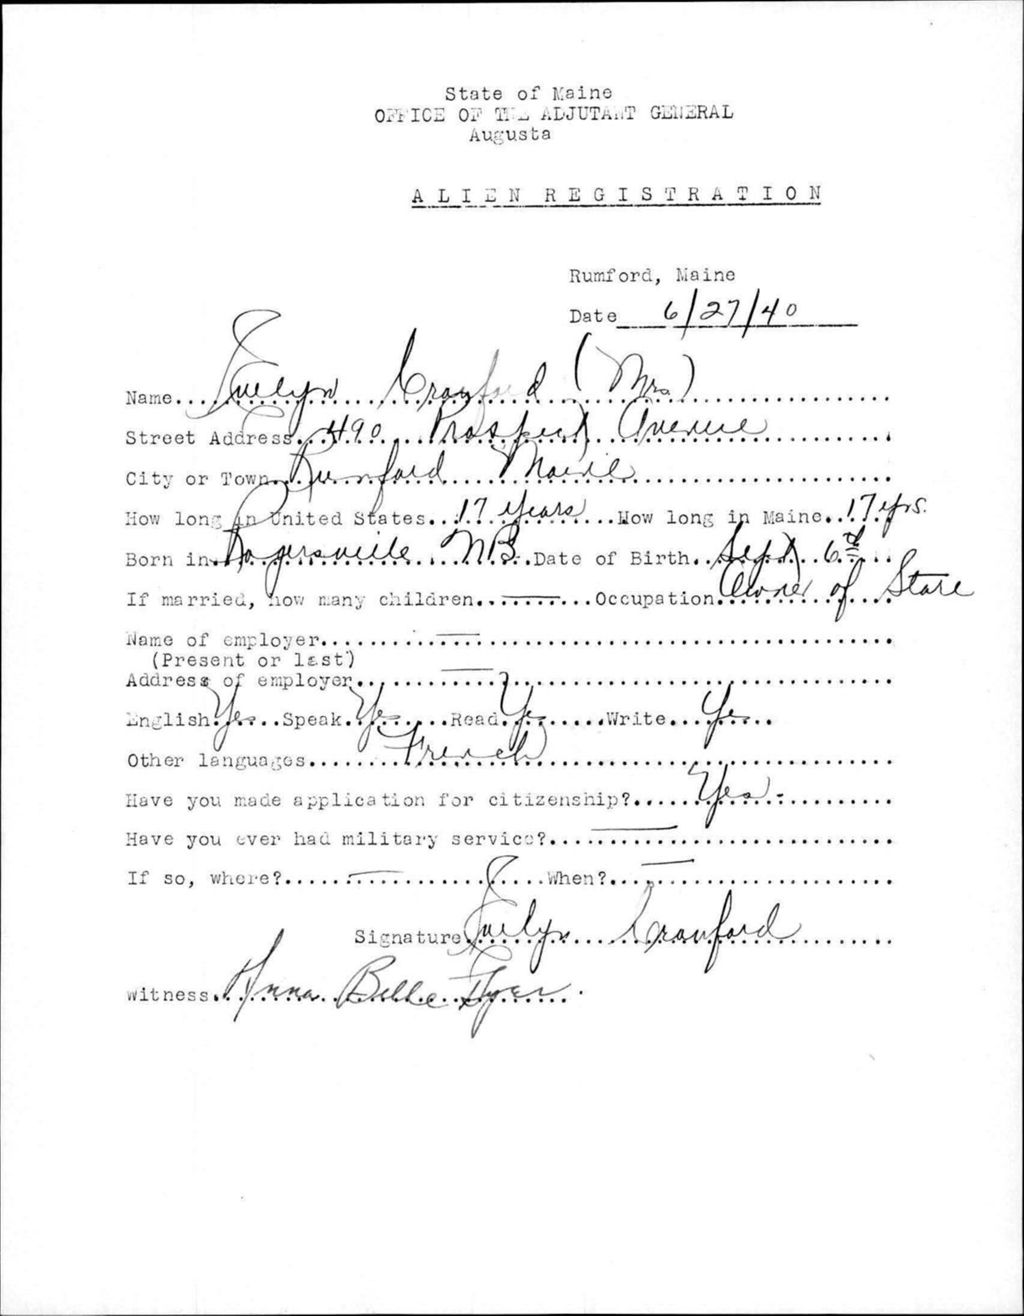 State of Maine
OFFICE OF THE ADJUTANT GENERAL
Augusta
ALIEN REGISTRATION
Rumford, Maine
Date 6/27/40
Name Evelyn Crawford (Mrs)
Street Address 490 Prospect Avenue
City or Town Rumford Maine
How long in United States 17 years How long in Maine 17 yrs.
Born in Rogersville N.B. Date of Birth Sept 6
If married, how many children Occupation Owner of Store
Name of employer
(Present or last)
Address of employer
English Yes Speak Yes Read Yes Write Yes
Other languages French
Have you made application for citizenship? Yes -
Have you ever had military service?
If so, where? When?
Signature Evelyn Crawford
Witness Anna Belle